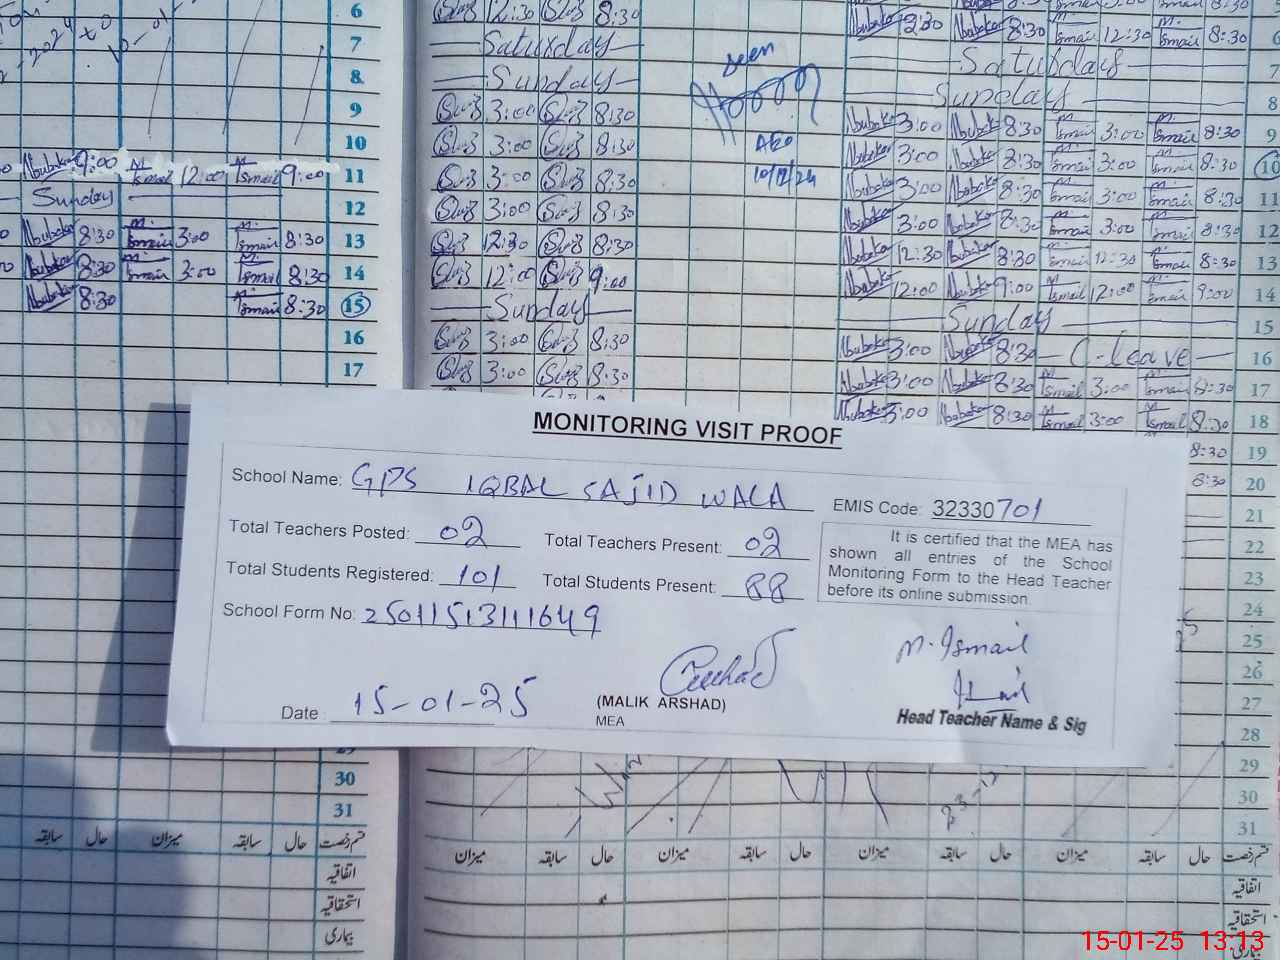 6 12:30 8:30 Abubakar 12:30 Abubakar 8:30 M. Ismail 12:30 M. Ismail 8:30 6
7 Saturday Saturday 7
8 Sunday Sunday 8
seen
9 3:00 8:30 Abubakar 3:00 Abubakar 8:30 M. Ismail 3:00 M. Ismail 8:30 9
10 3:00 8:30 AEO Abubakar 3:00 Abubakar 8:30 M. Ismail 3:00 M. Ismail 8:30 10
Abubakar 9:00 M. Ismail 12:00 M. Ismail 9:00 11 3:00 8:30 10/12/24 Abubakar 3:00 Abubakar 8:30 M. Ismail 3:00 M. Ismail 8:30 11
Sunday 12 3:00 8:30 Abubakar 3:00 Abubakar 8:30 M. Ismail 3:00 M. Ismail 8:30 12
Abubakar 8:30 M. Ismail 3:00 M. Ismail 8:30 13 12:30 8:30 Abubakar 12:30 Abubakar 8:30 M. Ismail 12:30 M. Ismail 8:30 13
Abubakar 8:30 M. Ismail 3:00 M. Ismail 8:30 14 12:00 9:00 Abubakar 12:00 Abubakar 9:00 M. Ismail 12:00 M. Ismail 9:00 14
Abubakar 8:30 M. Ismail 8:30 15 Sunday Sunday 15
16 3:00 8:30 Abubakar 3:00 Abubakar 8:30 C-leave 16
17 3:00 8:30 Abubakar 3:00 Abubakar 8:30 M. Ismail 3:00 M. Ismail 8:30 17
Abubakar 3:00 Abubakar 8:30 M. Ismail 3:00 M. Ismail 8:30 18
8:30 19
8:30 20
21
22
23
24
25
26
27
28
29
30
31
MONITORING VISIT PROOF
School Name: GPS IQBAL SAJID WALA EMIS Code: 32330701
Total Teachers Posted: 02 Total Teachers Present: 02
Total Students Registered: 101 Total Students Present: 88
School Form No: 25011513111649
It is certified that the MEA has
shown all entries of the School
Monitoring Form to the Head Teacher
before its online submission.
Date: 15-01-25
(MALIK ARSHAD)
MEA
M. Ismail
Head Teacher Name & Sig
30
31
قسم رخصت حال سابقہ میزان حال سابقہ
قسم رخصت حال سابقہ میزان حال سابقہ میزان حال سابقہ میزان حال سابقہ میزان
اتفاقیہ اتفاقیہ
استحقاقیہ استحقاقیہ
بیماری بیماری
15-01-25 13:13